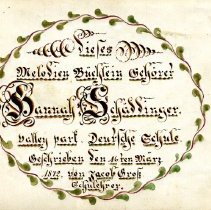 Dieses
Melodien Büchlein Gehöret
Hannah Schattinger.
valley part. Deutsche Schule
Geschrieben den 16ten Mart
1832. von Jacob Groß
Schulehrer.